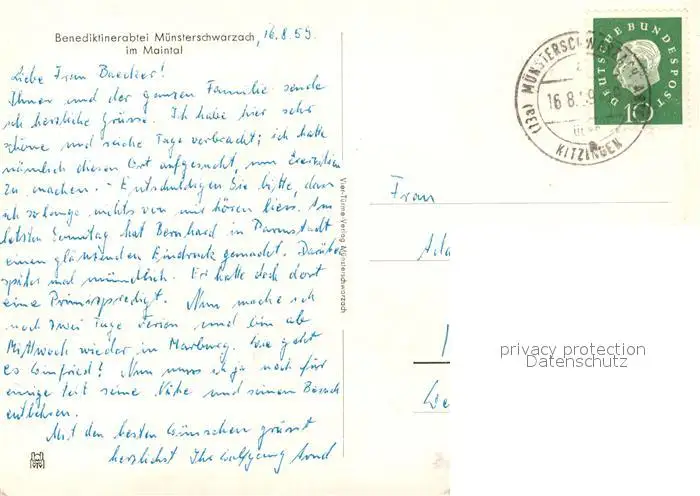 Benediktinerabtei Münsterschwarzach
im Maintal
16.8.59.
Liebe Frau Baecker!
Ihnen und der ganzen Familie sende
ich herzliche Grüsse. Ich habe hier sehr
schöne und reiche Tage verbracht; ich hatte
nämlich diesen Ort aufgesucht, um Exerzitien
zu machen. - Entschuldigen Sie bitte, dass
ich so lange nichts von mir hören liess. Am
letzten Sonntag hat Bernhard in Darmstadt
einen glänzenden Eindruck gemacht. Darüber
später mal mündlich. Er hatte doch dort
eine Primizpredigt. Nun mache ich
noch zwei Tage Ferien und bin ab
Mittwoch wieder in Marburg. Wie geht
es Winfried? Nun muss ich ja noch für
einige Zeit seine Nähe und seinen Besuch
entbehren.
Mit den besten Wünschen grüsst
herzlichst Ihr Wolfgang
Vier-Türme-Verlag Münsterschwarzach
DEUTSCHE BUNDESPOST
10
(13a) MÜNSTERSCHWARZACH
16.8.59
ÜBER
KITZINGEN
Frau
privacy protection
Datenschutz